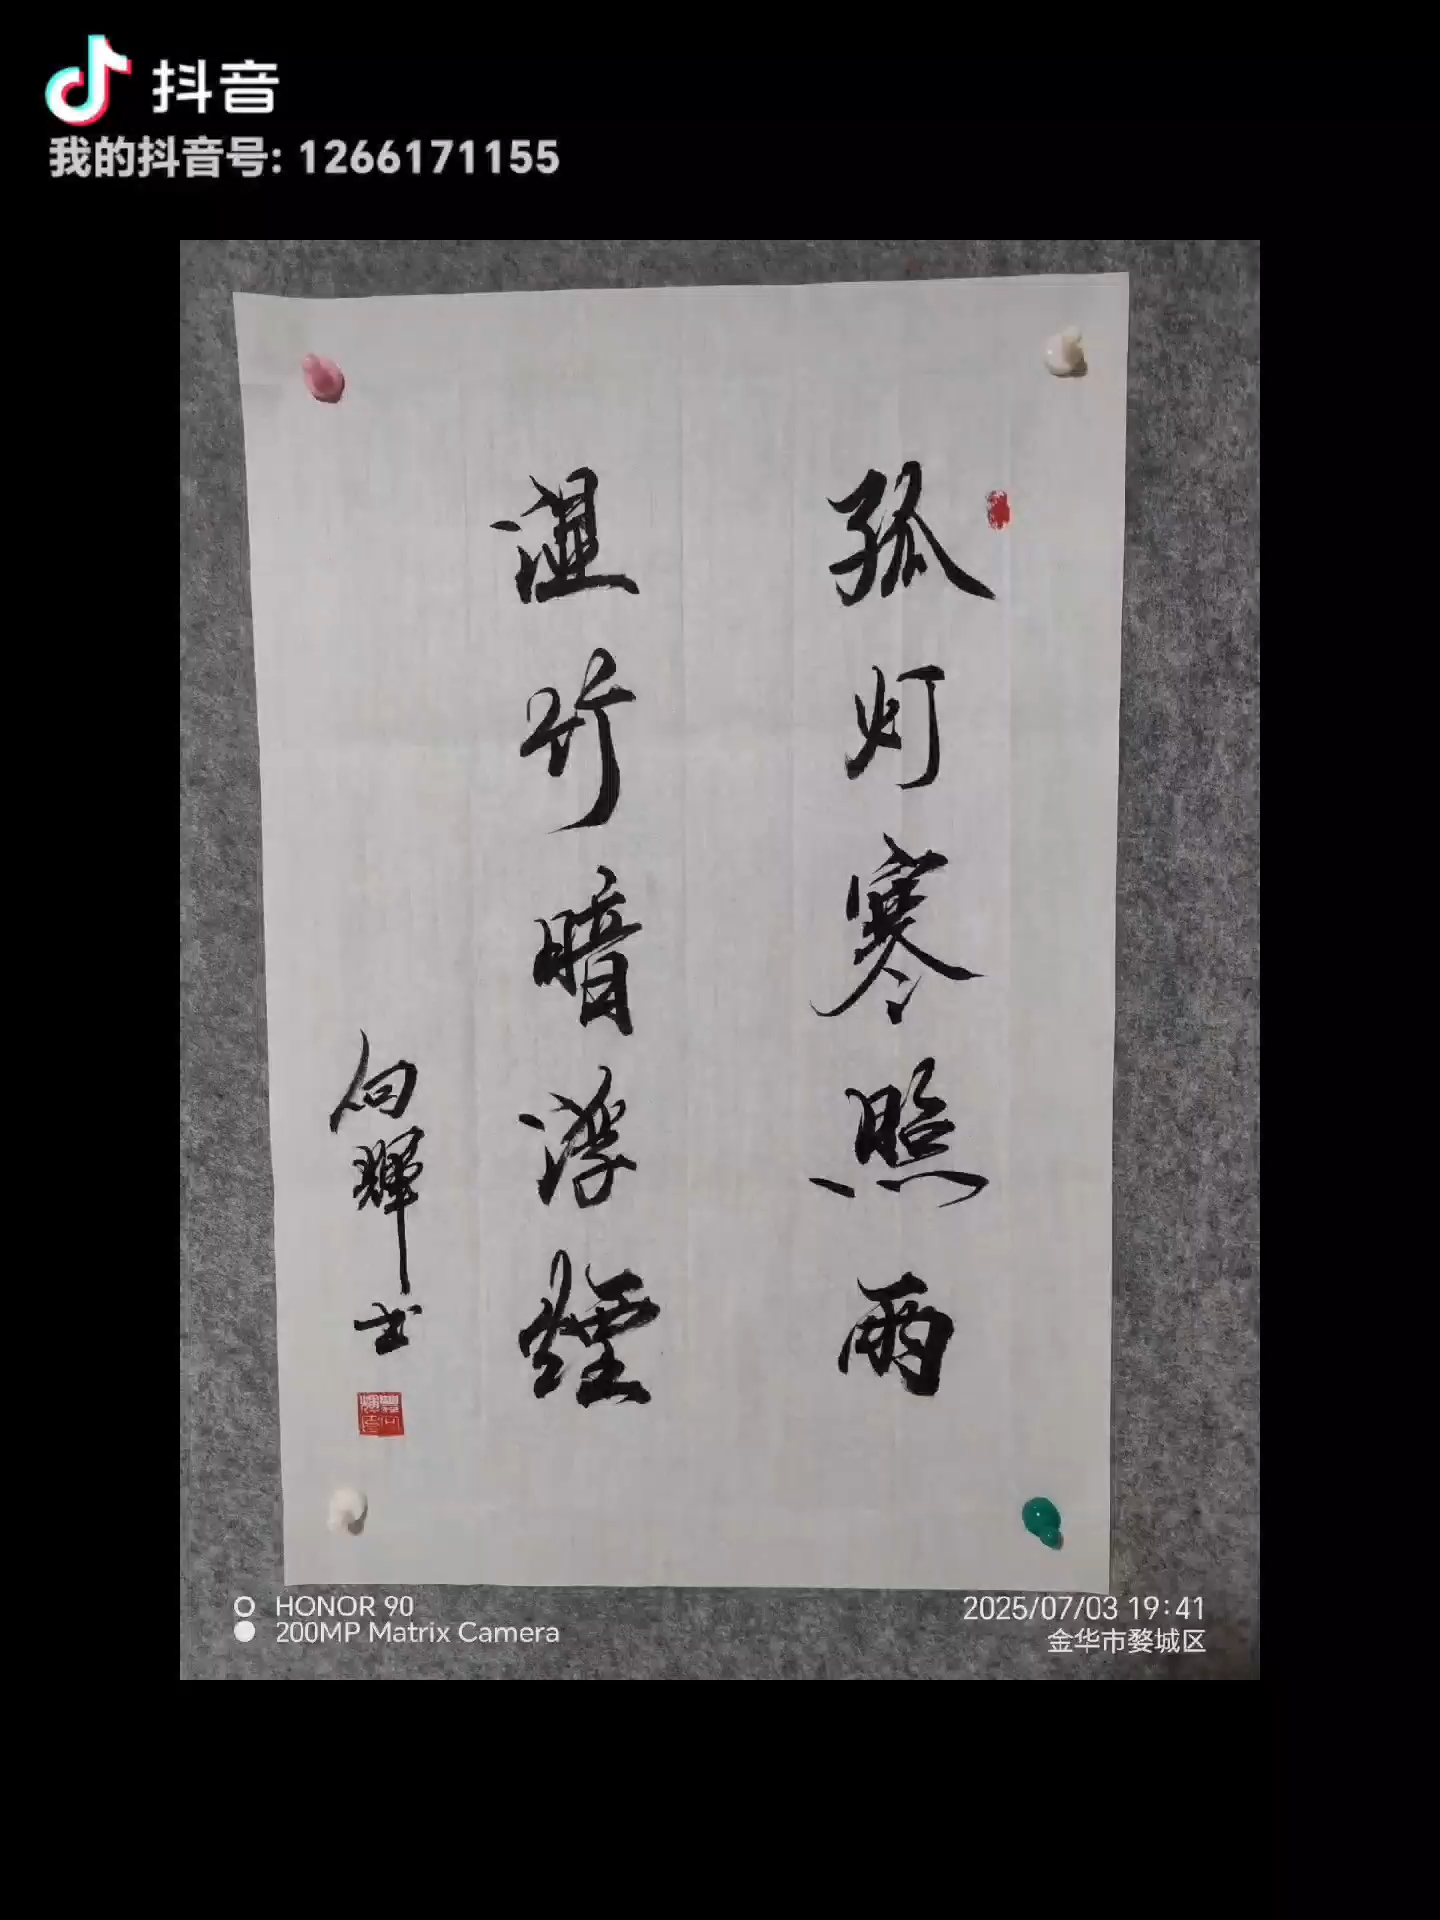 抖音
我的抖音号: 1266171155
孤灯寒照雨
湿竹暗浮煙
向輝书
HONOR 90
200MP Matrix Camera
2025/07/03 19:41
金华市婺城区